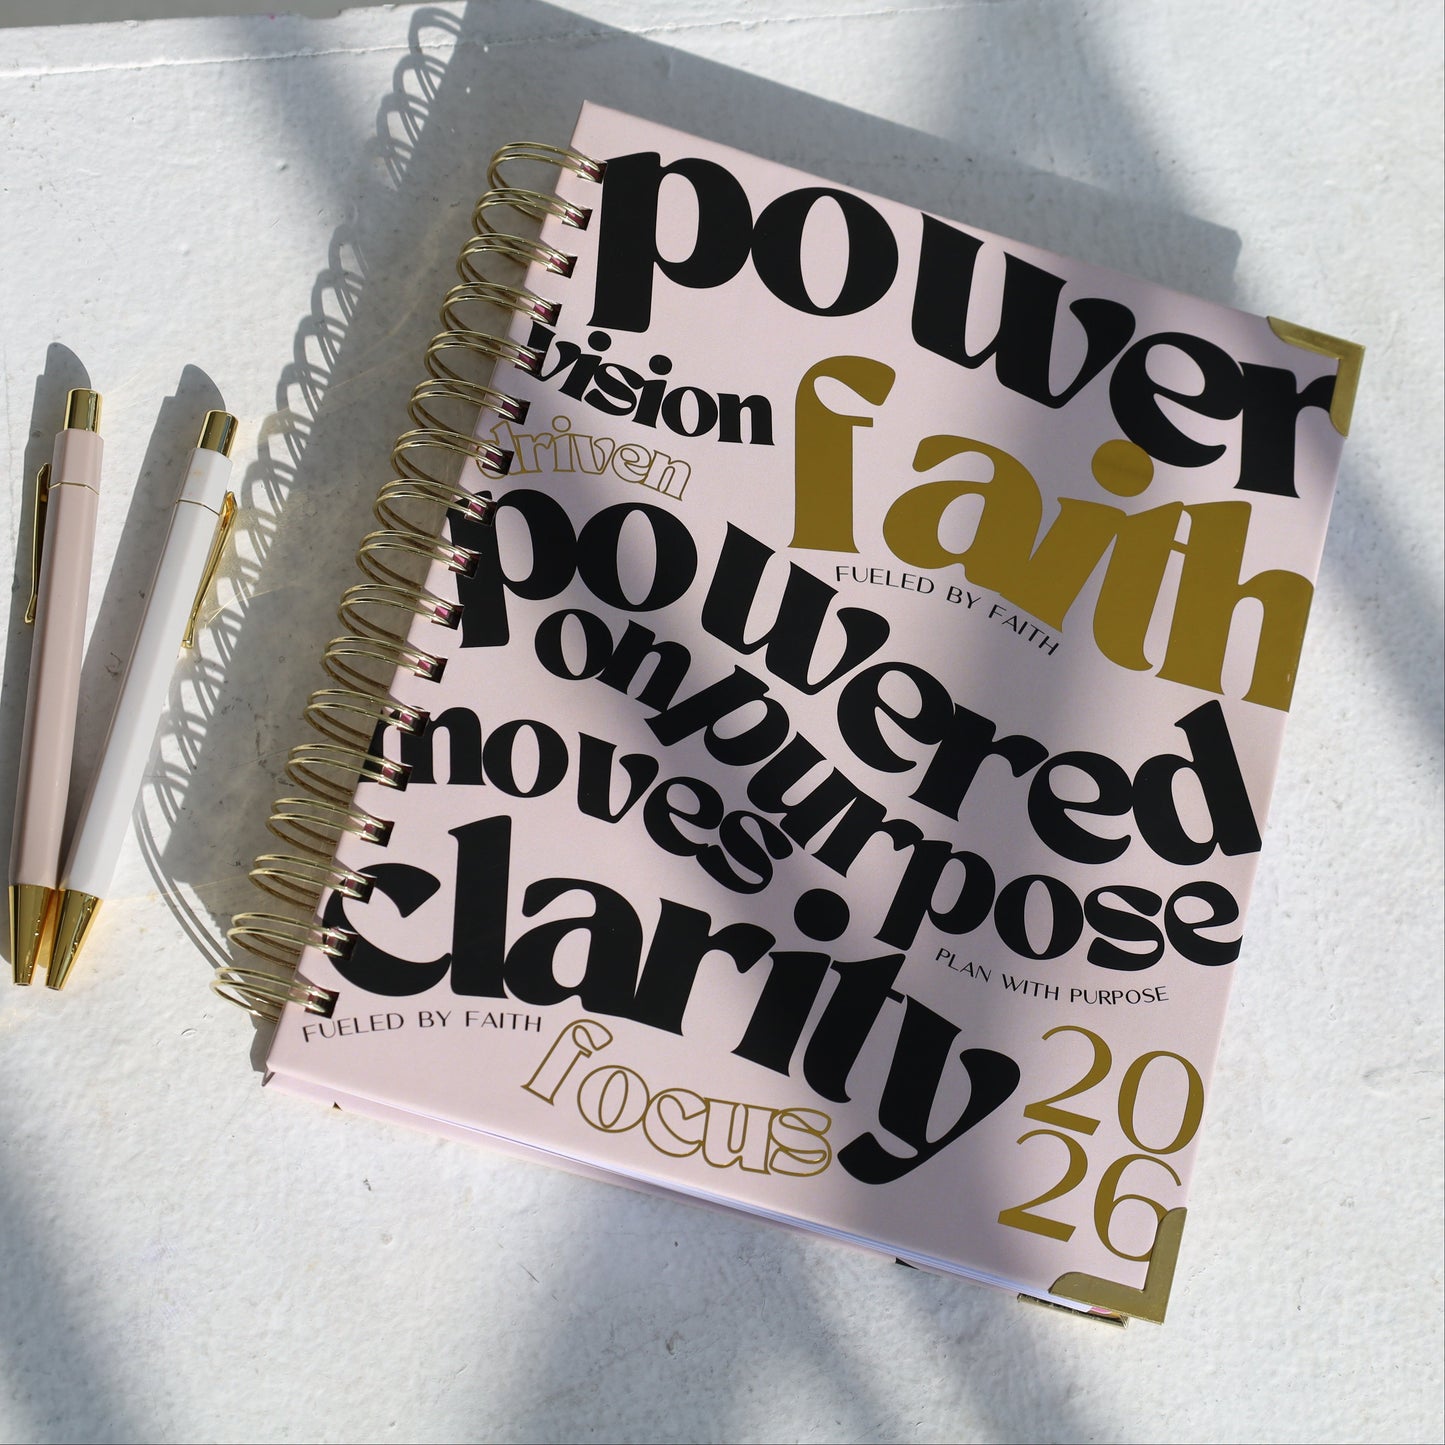 power
vision
faith
driven
FUELED BY FAITH
powered
onpurpose
moves
PLAN WITH PURPOSE
clarity
FUELED BY FAITH
focus
20
26